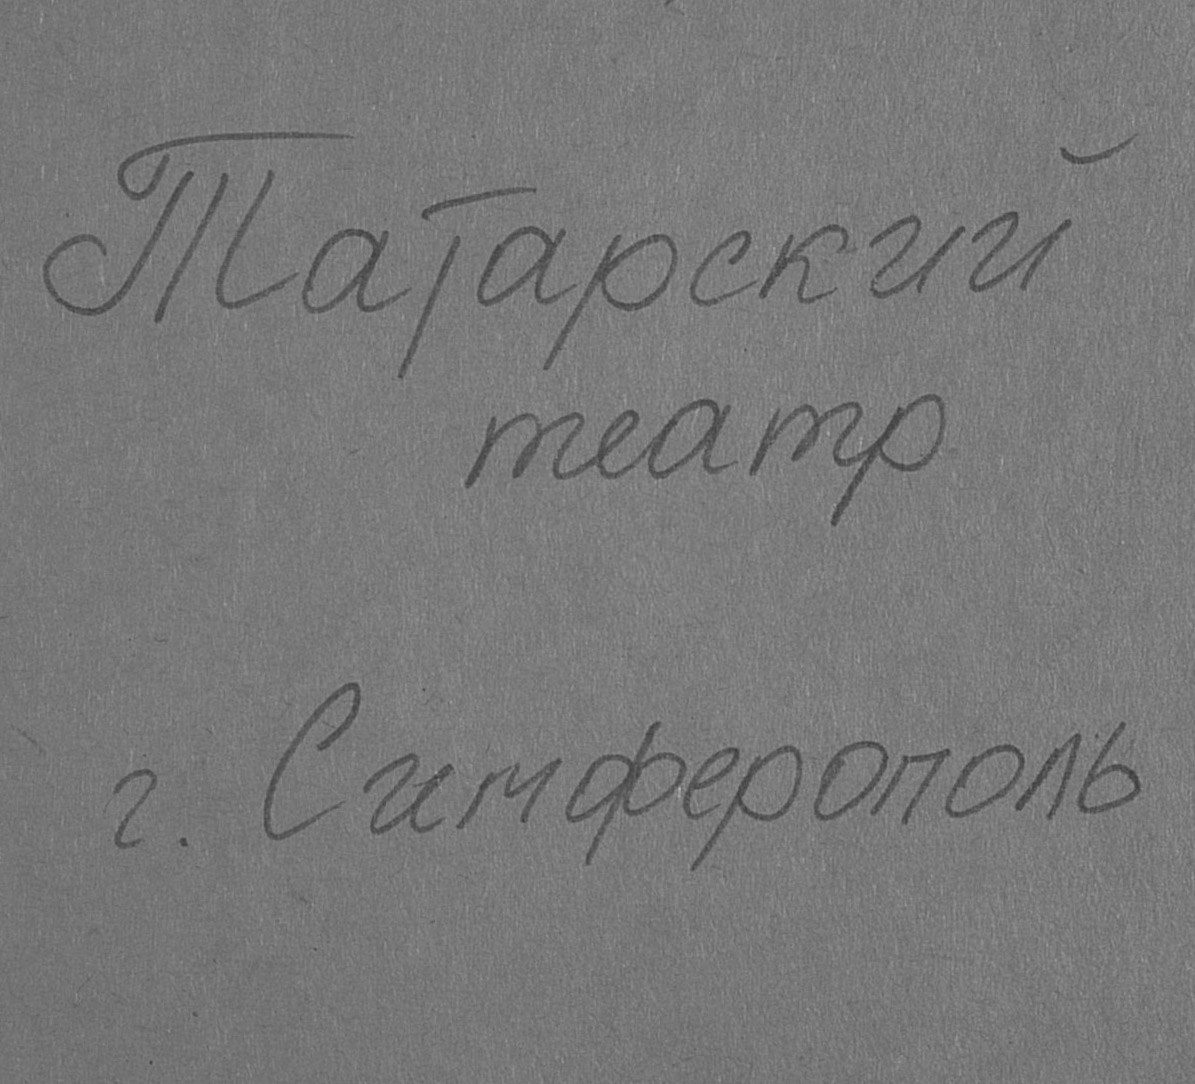 Татарский
театр
г. Симферополь